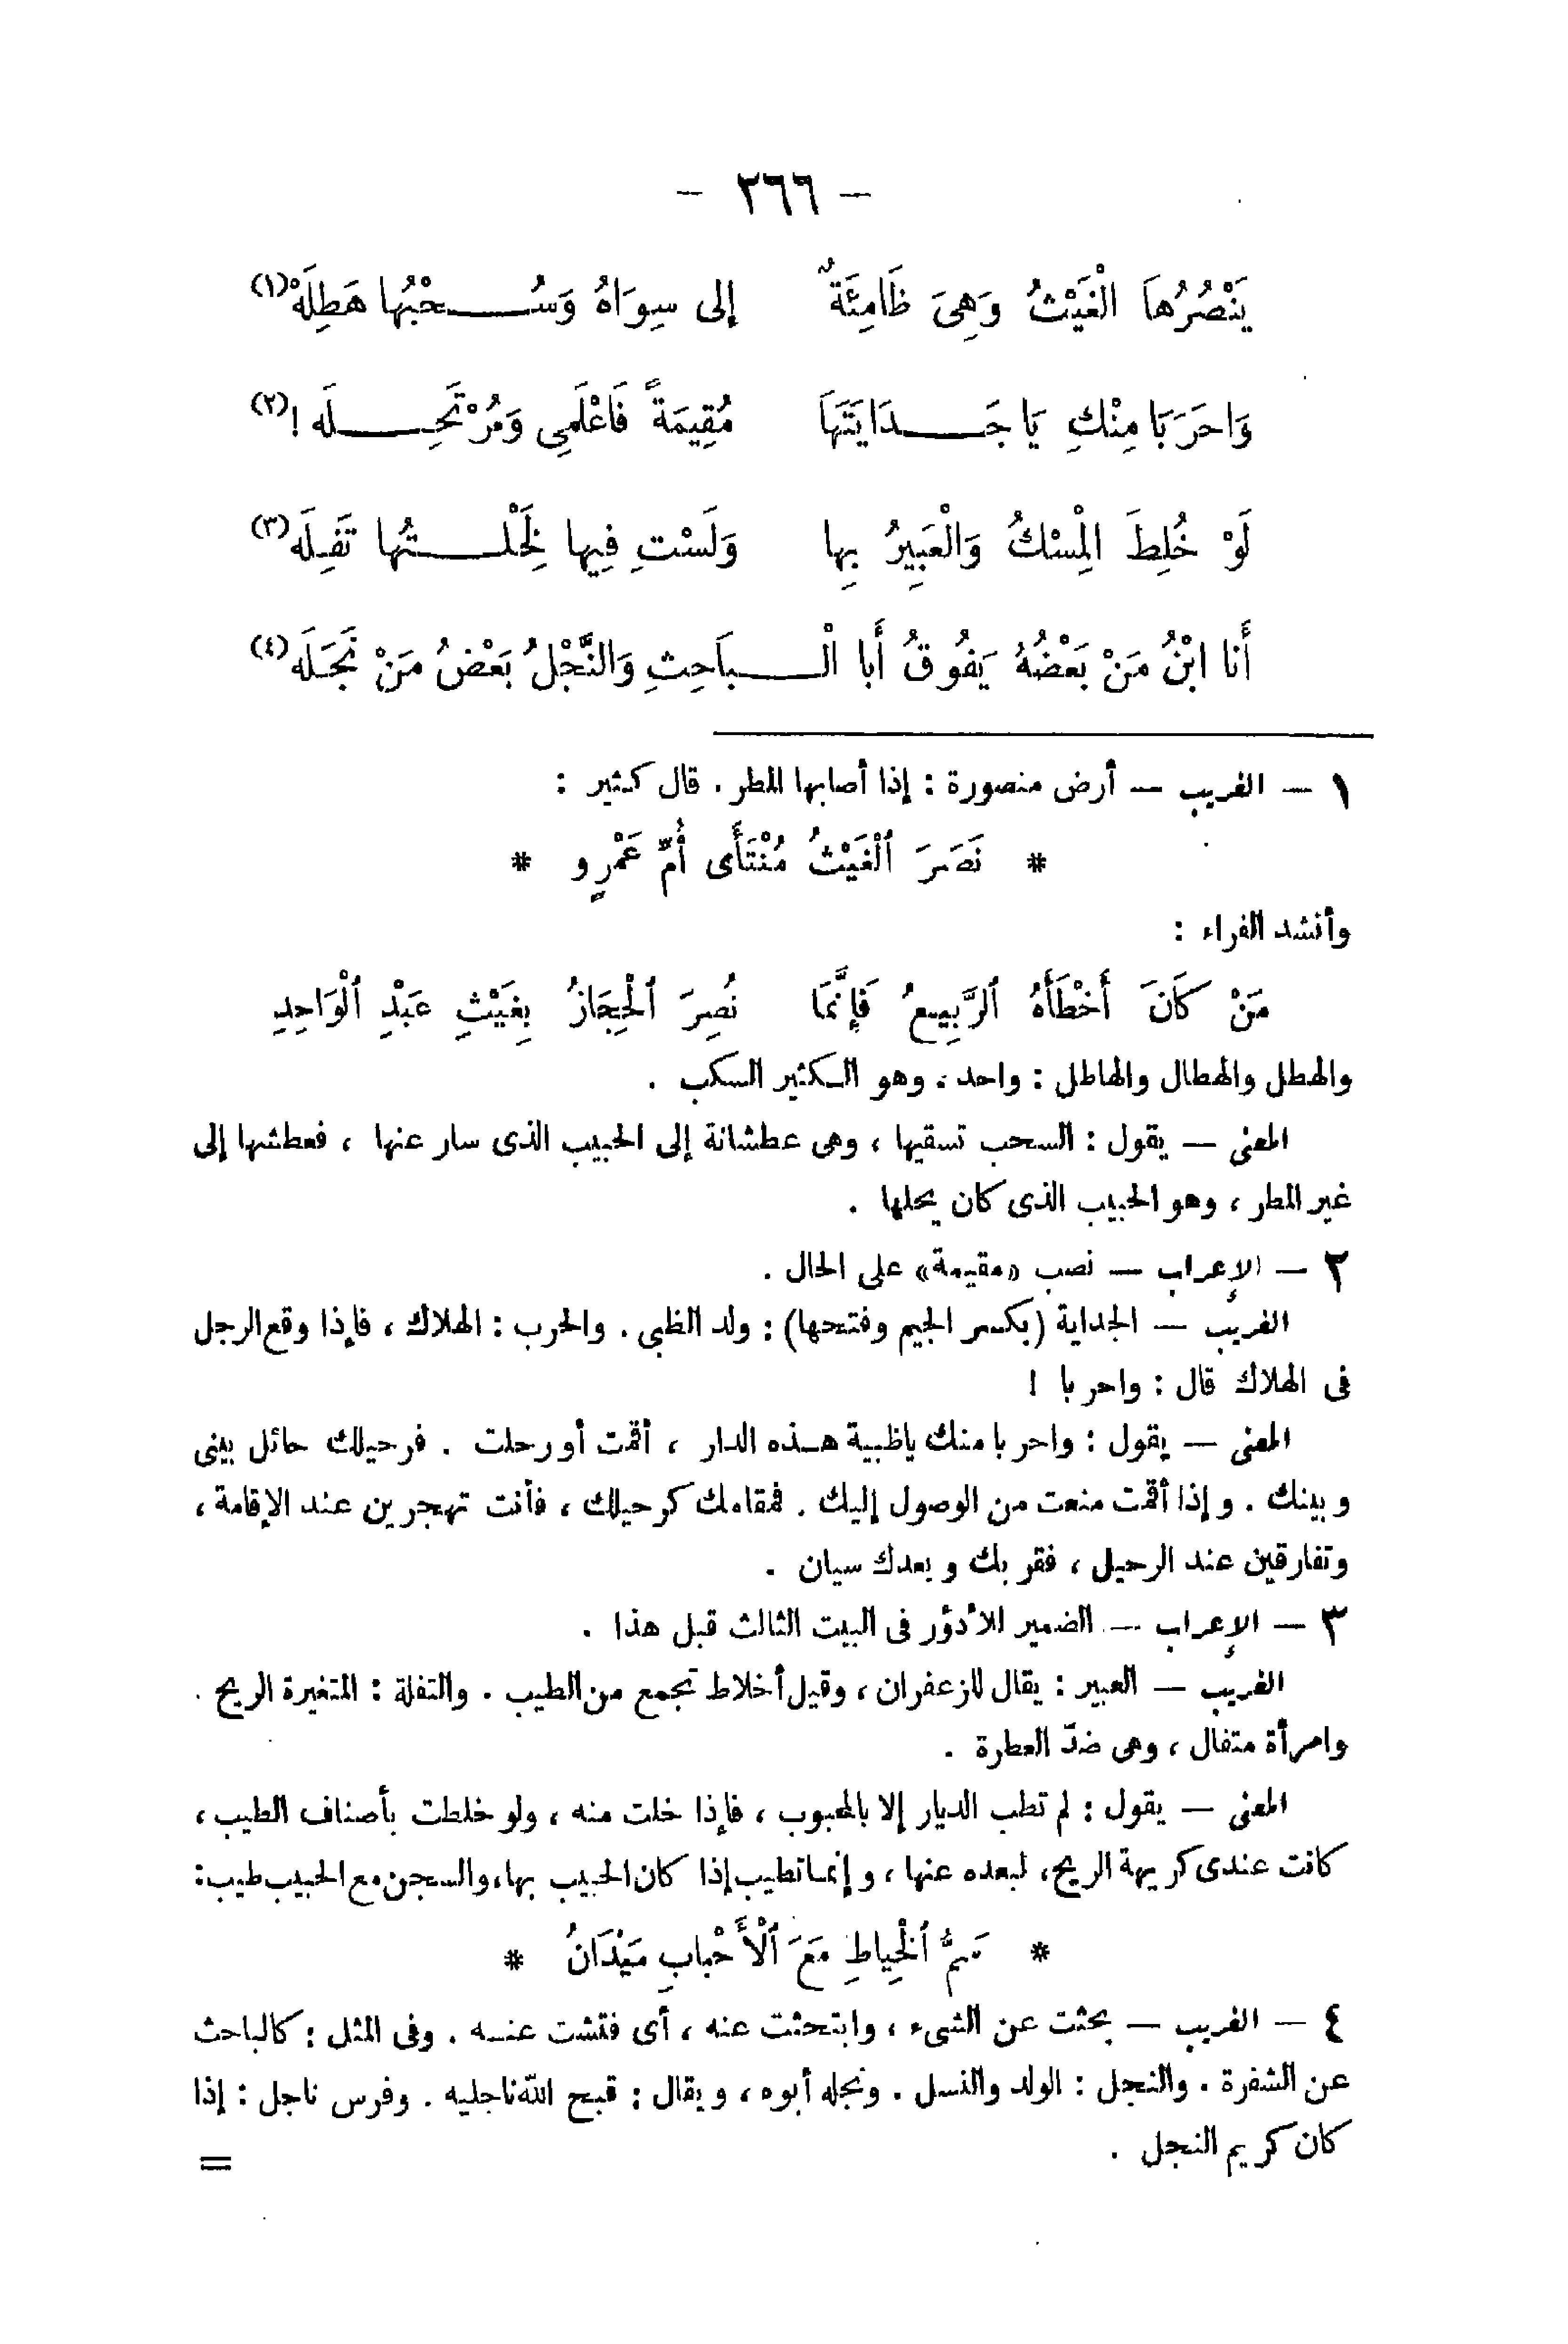 - ٢٦٦ -
يَنْصُرُهاَ الْغَيْثُ وَهِىَ ظَامِئَةٌ إلى سِوَاهُ وَسُحْبُها هَطِلَهْ(١)
وَاحَرَبَا مِنْكِ يَا جَدَايَتَهَا مُقِيمَةً فَاعْلَمِى وَمُرْتَحِلَه !(٢)
لَوْ خُلِطَ الْمِسْكُ وَالْعَبِيرُ بِها وَلَسْتِ فِيها لَخِلْتُها تَفِلَه(٣)
أَنا ابْنُ مَنْ بَعْضُهُ يَفُوقُ أَبا الْباَحِثِ وَالنَّجْلُ بَعْضُ مَنْ نَجَلَه(٤)
١ — الغريب — أرض منصورة : إذا أصابها المطر . قال كثير :
* نَصَرَ ٱلْغَيْثُ مُنْتَأَى أُمِّ عَمْرٍو *
وأنشد الفراء :
مَنْ كَانَ أَخْطَأَهُ ٱلرَّبِيعُ فَإِنَّمَا نُصِرَ ٱلْحِجَازُ بِغَيْثِ عَبْدِ ٱلْوَاحِدِ
والهطل والهطال والهاطل : واحد . وهو الكثير السكب .
المعنى — يقول : السحب تسقيها ، وهى عطشانة إلى الحبيب الذى سار عنها ، فعطشها إلى
غير المطر ، وهو الحبيب الذى كان يحلها .
٢ — الإعراب — نصب «مقيمة» على الحال .
الغريب — الجداية (بكسر الجيم وفتحها) : ولد الظبى . والحرب : الهلاك ، فإذا وقع الرجل
فى الهلاك قال : واحربا !
المعنى — يقول : واحربا منك ياظبية هذه الدار ، أقمت أو رحلت . فرحيلك حائل بينى
وبينك . وإذا أقمت منعت من الوصول إليك . فمقامك كرحيلك ، فأنت تهجرين عند الإقامة ،
وتفارقين عند الرحيل ، فقربك وبعدك سيان .
٣ — الإعراب — الضمير للأدؤر فى البيت الثالث قبل هذا .
الغريب — العبير : يقال للزعفران ، وقيل أخلاط تجمع من الطيب . والتفلة : المتغيرة الريح .
وامرأة متفال ، وهى ضدّ العطرة .
المعنى — يقول : لم تطب الديار إلا بالمحبوب ، فإذا خلت منه ، ولو خلطت بأصناف الطيب ،
كانت عندى كريهة الريح، لبعده عنها ، وإنما تطيب إذا كان الحبيب بها، والسجن مع الحبيب طيب :
* سَمُّ ٱلْخِياطِ مَعَ ٱلْأَحْبابِ مَيْدَانُ *
٤ — الغريب — بحثت عن الشىء ، وابتحثت عنه ، أى فتشت عنه . وفى المثل : كالباحث
عن الشفرة . والنجل : الولد والنسل . ونجله أبوه ، ويقال : قبح الله ناجليه . وفرس ناجل : إذا
كان كريم النجل .
=